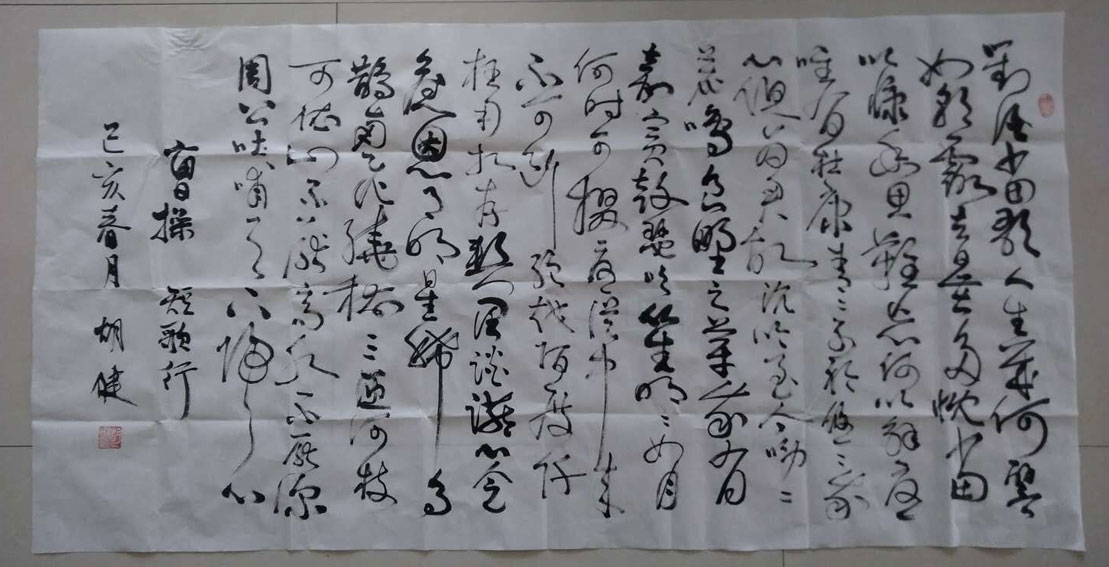 對酒当歌人生幾何譬
如朝露去日苦多慨当
以慷幽思難忘何以解憂
唯有杜康青々子衿悠々我
心但为君故沉吟至今呦々
鹿鳴食野之苹我有
嘉宾鼓瑟吹笙明々如月
何时可掇憂從中来
不可断绝越陌度阡
枉用相存契阔谈讌心念
舊恩月明星稀烏
鵲南飞绕樹三匝何枝
可依山不厌高水不厌深
周公吐哺天下归心
曹操 短歌行
己亥春月 胡健